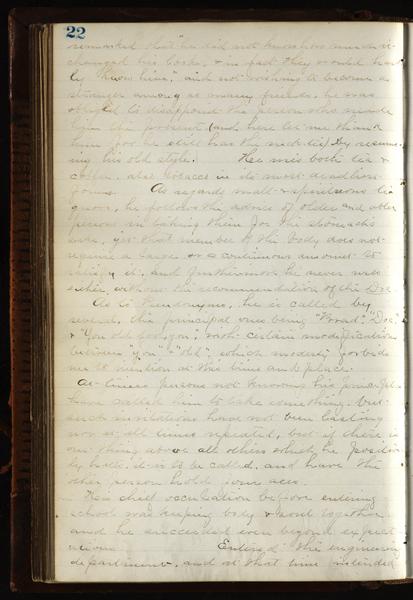 22
remarked that "he did not know how much it
changed his looks, & in fact they would hard
ly know him," and not wishing to become a
stranger among so many friends, he was
obliged to disappoint the person who made
him the present (and here let me thank
him for he still has the neck-tie) by resum-
ing his old style. He uses both tea &
coffee, also tobacco in its most deadliest
forms. As regards malt & spirituous li
quors, he follows the advice of older and abler
persons in taking them for the stomach's
sake, yet that member of the body does not
require a large, or a continuous amount to
satisfy it, and furthermore he never uses
either without the recommendation of the Doc.
As to Pseudonyms, he is called by
several, the principal ones being "Broad," "Doc,"
& "You old son of a gun," with certain modifications
between "you" & "old", which modesty forbids
me to mention at this time and place.
At times persons not knowing his principles
have called him to take something, but
such invitations have not been lasting
nor at all times repeated, but if there is
one thing above all others which he positive
ly hates, it is to be called, and have the
other person hold four aces.
His chief occupation before entering
school was keeping body & soul together
and he succeeded even beyond expect
ations. Entered the engineering
department, and at that time intended